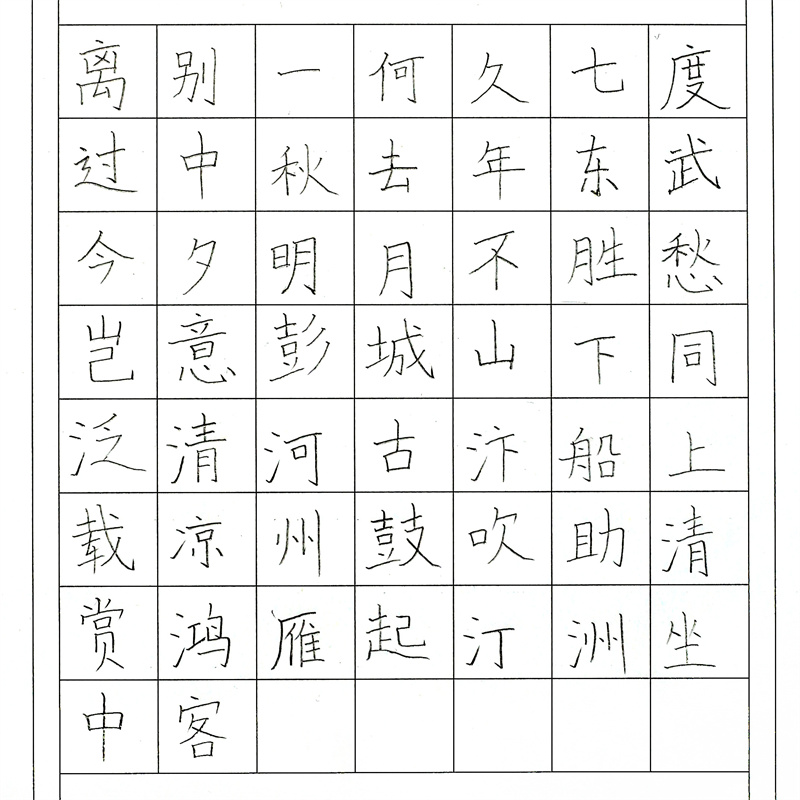 离别一何久七度
过中秋去年东武
今夕明月不胜愁
岂意彭城山下同
泛清河古汴船上
载凉州鼓吹助清
赏鸿雁起汀洲坐
中客